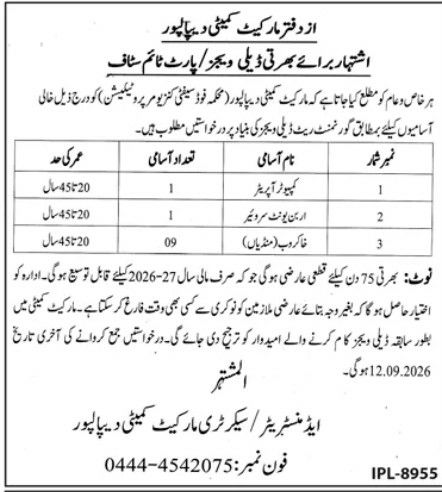 از دفتر مارکیٹ کمیٹی دیپالپور
اشتہار برائے بھرتی ڈیلی ویجز/پارٹ ٹائم سٹاف
ہر خاص و عام کو مطلع کیا جاتا ہے کہ مارکیٹ کمیٹی دیپالپور (محکمہ فوڈ سیفٹی کنزیومر پروٹیکشن) کو درج ذیل خالی
آسامیوں کیلئے بمطابق گورنمنٹ ریٹ ڈیلی ویجز کی بنیاد پر درخواستیں مطلوب ہیں۔
نمبر شمار نام آسامی تعداد آسامی عمر کی حد
1 کمپیوٹر آپریٹر 1 20تا45سال
2 اربن یونٹ سروئیر 1 20تا45سال
3 خاکروب (منڈیاں) 09 20تا45سال
نوٹ: بھرتی 75 دن کیلئے قطعی عارضی ہوگی جو کہ صرف مالی سال 27-2026 کیلئے قابل توسیع ہوگی۔ ادارہ کو
اختیار حاصل ہو گا کہ بغیر وجہ بتائے عارضی ملازمین کو نوکری سے کسی بھی وقت فارغ کر سکتا ہے۔ مارکیٹ کمیٹی میں
بطور سابقہ ڈیلی ویجز کام کرنے والے امیدوار کو ترجیح دی جائے گی۔ درخواستیں جمع کروانے کی آخری تاریخ
12.09.2026 ہوگی۔
المشتہر
ایڈمنسٹریٹر/سیکرٹری مارکیٹ کمیٹی دیپالپور
فون نمبر: 0444-4542075
IPL-8955